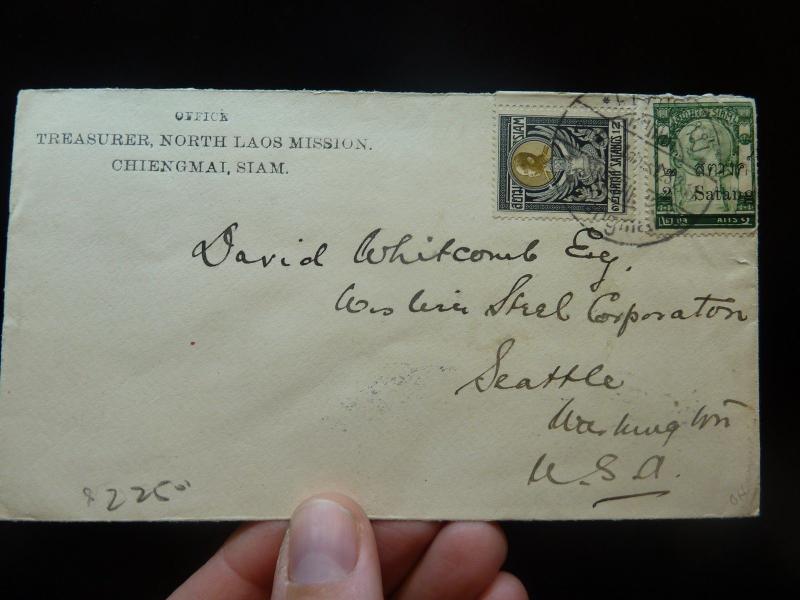 OFFICE
TREASURER, NORTH LAOS MISSION.
CHIENGMAI, SIAM.
สยาม SIAM
SATANG 12
๒ สตางค์
2 Satang
David Whitcomb Esq.
Western Steel Corporaton
Seattle
Washington
U.S.A.
$2250